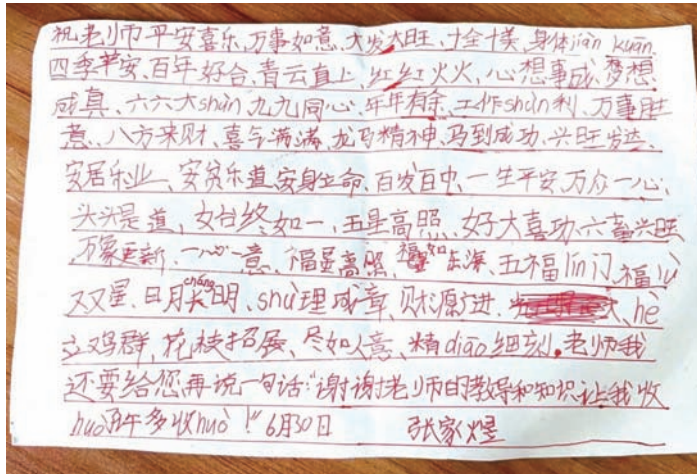 祝老师平安喜乐、万事如意、大发大旺、十全十美、身体jiàn kuān、
四季平安、百年好合、青云直上、红红火火、心想事成、梦想
成真、六六大shùn、九九同心、年年有余、工作shùn利、万事胜
意、八方来财、喜气满满、龙马精神、马到成功、兴旺发达、
安居乐业、安贫乐道、安身立命、百发百中、一生平安、万众一心、
头头是道、女台终如一、五星高照、好大喜功、六畜兴旺
万象更新、一心一意、福星高照、福如东海、五福lín门、福lù
双星、日月cháng长明、shùn理成章、财源广进、hè
立鸡群、花枝招展、尽如人意、精diāo细刻。老师我
还要给您再说一句话:"谢谢老师的教导和知识让我收
huò许多收huò!"6月30日 张家煜